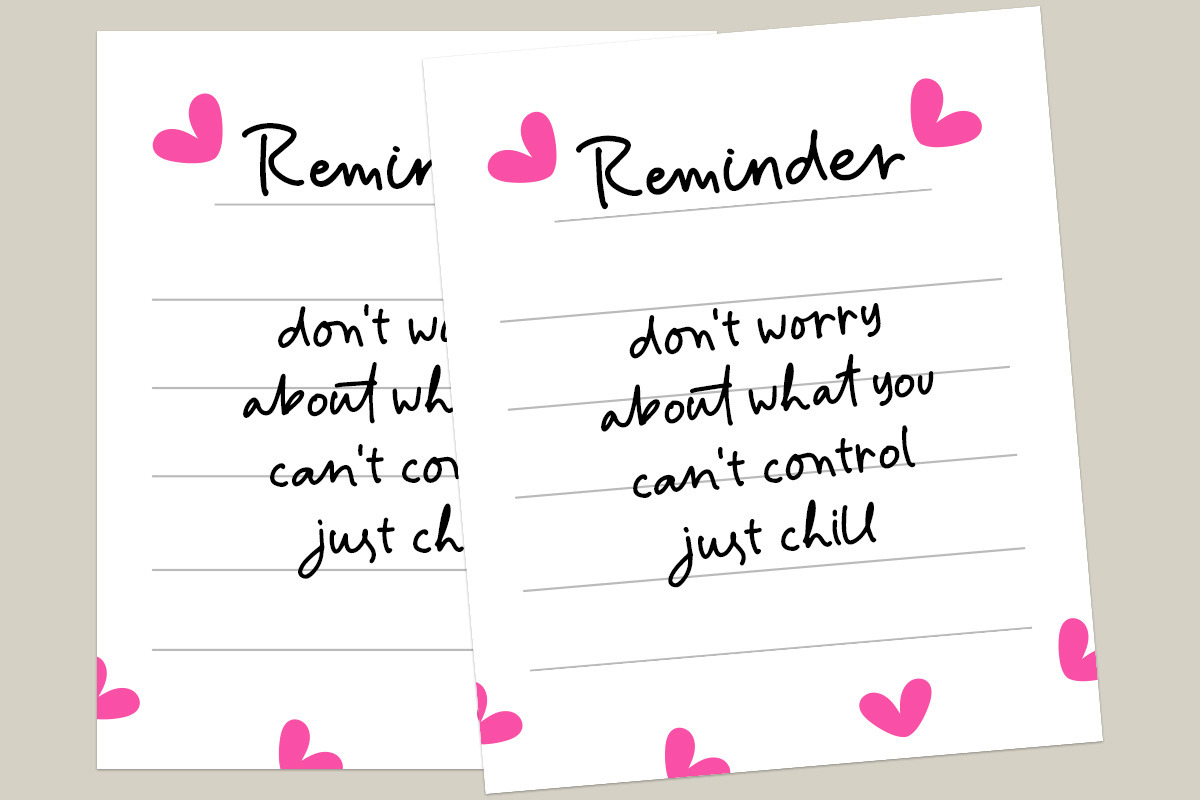 Remin
don't wo
about wh
can't con
just ch
Reminder
don't worry
about what you
can't control
just chill